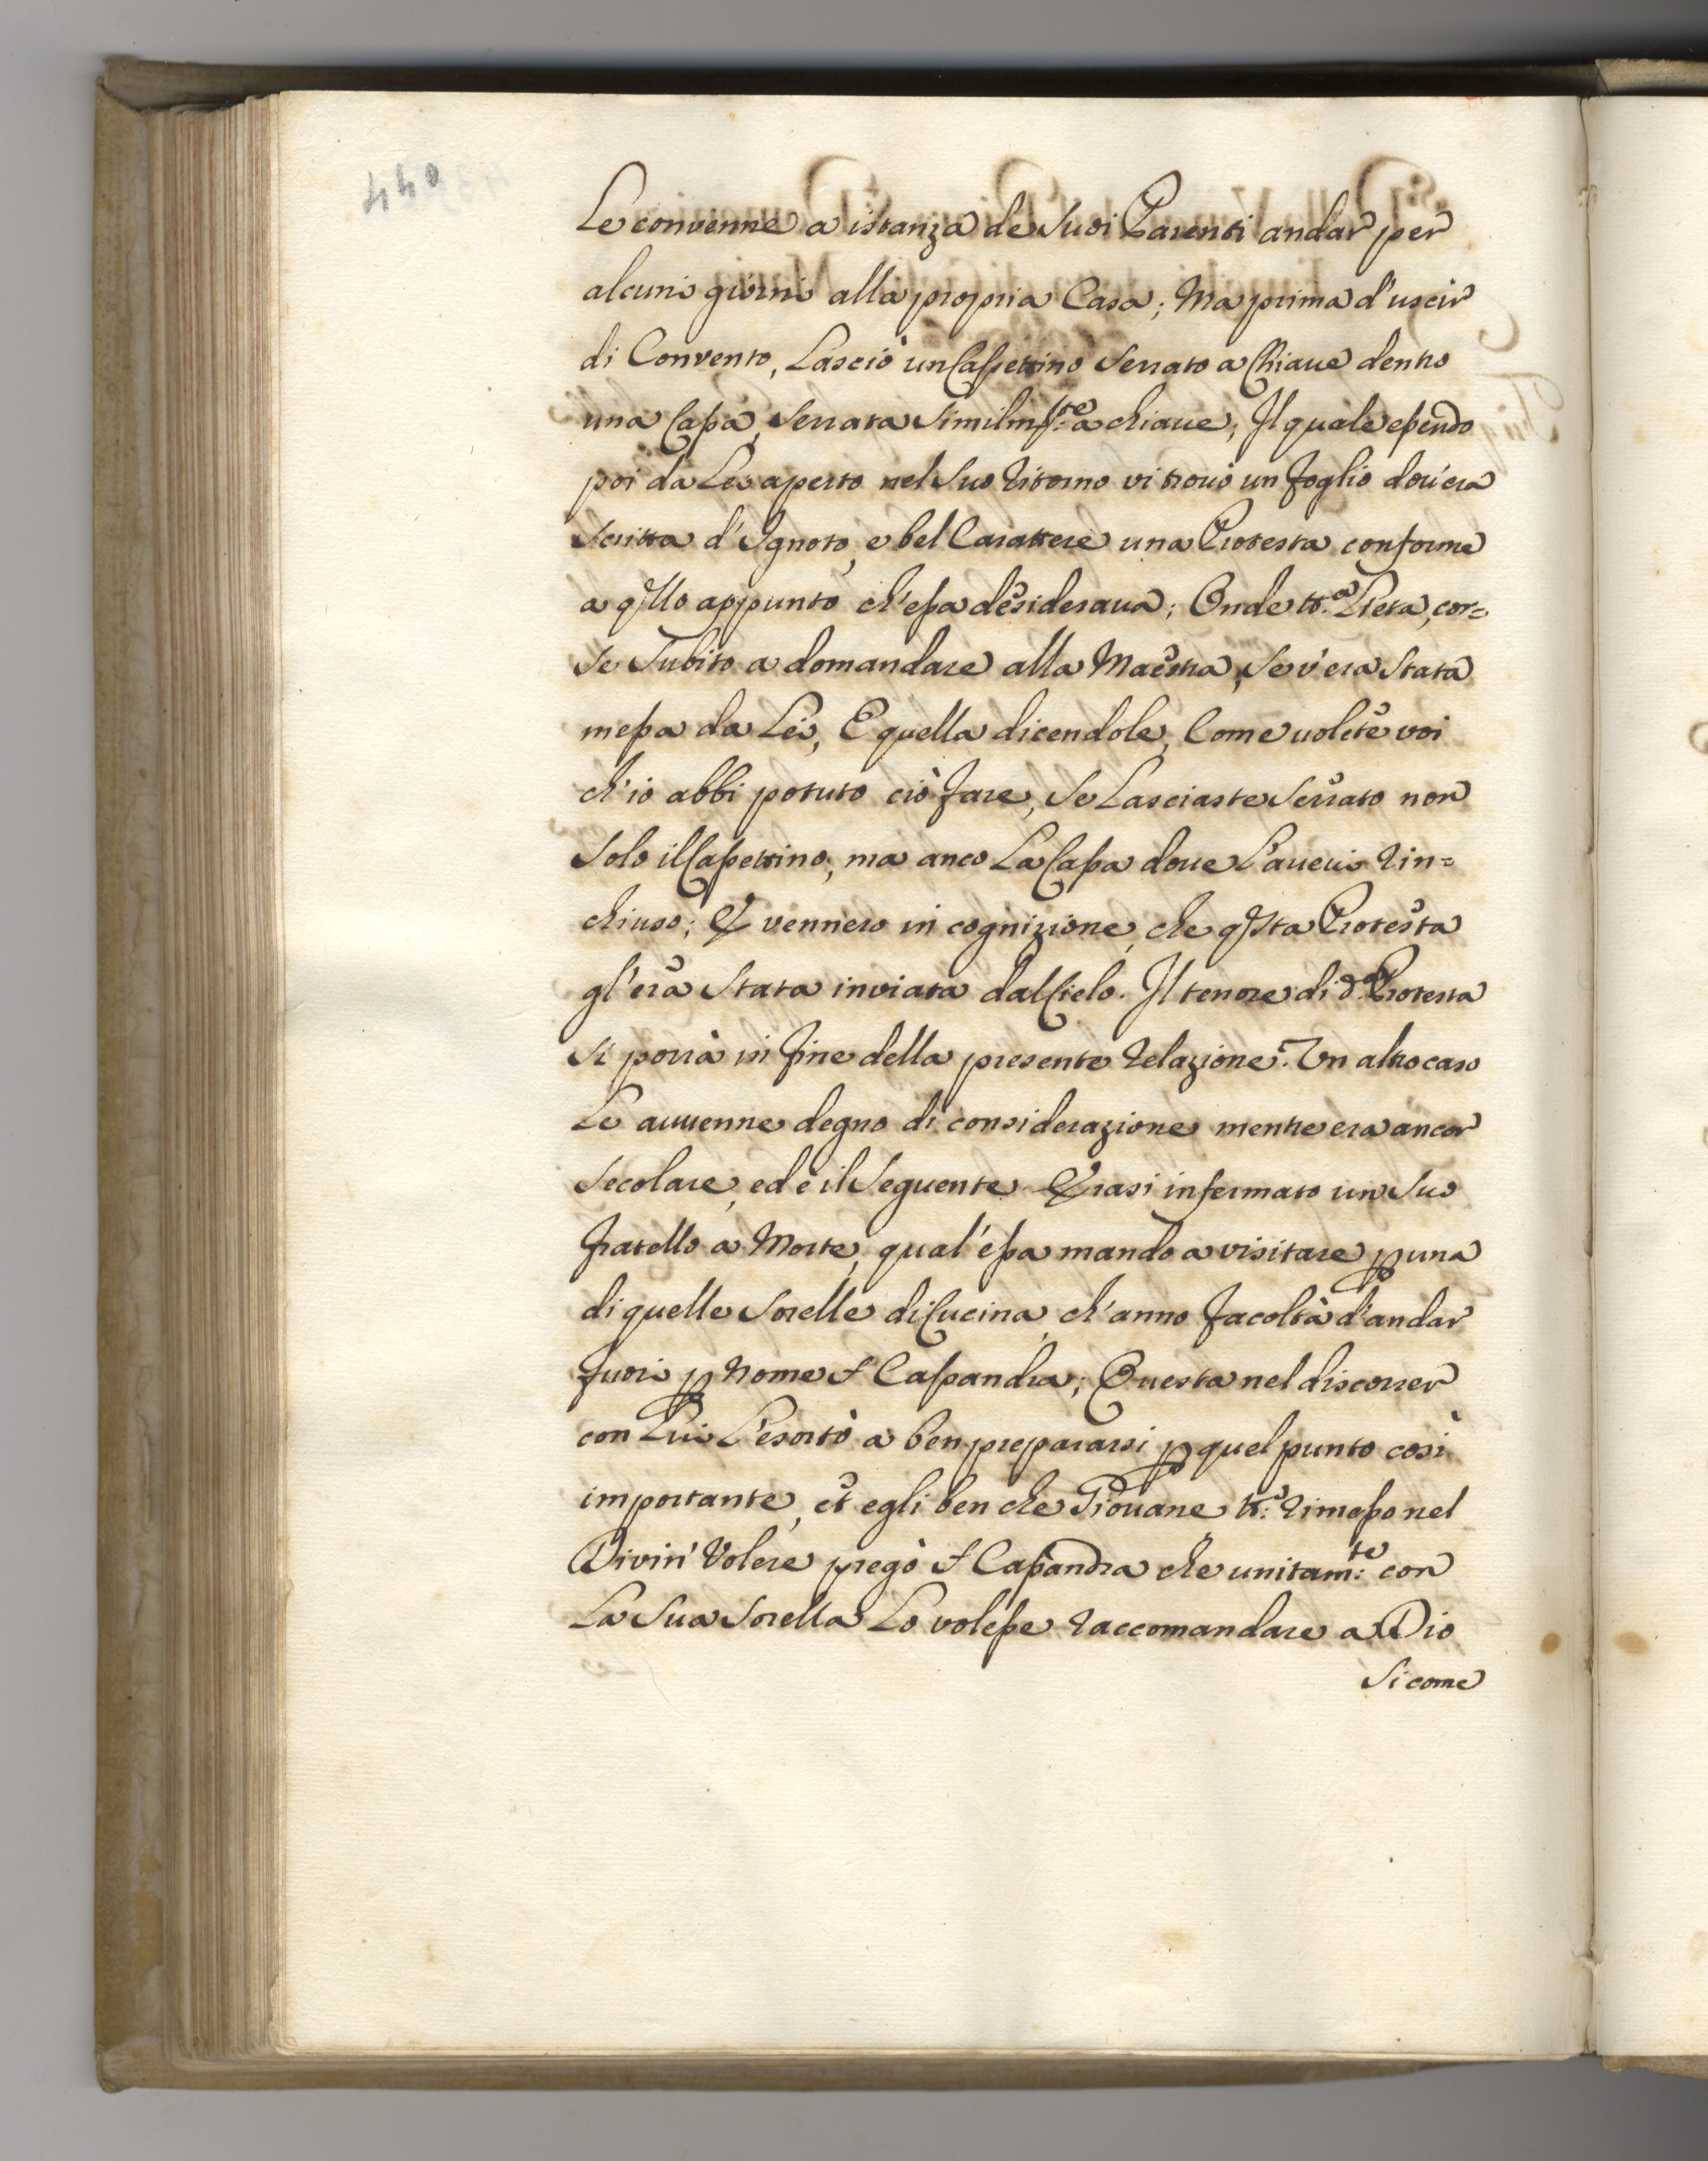 440
Le convenne a istanza de Suoi Parenti andar per
alcuni giorni alla propria Casa; Ma prima d'uscir
di Convento, Lasciò un Cassettino Serrato a Chiave dentro
una Cassa, Serrata Similm.te a chiave; Il quale essendo
poi da Lei aperto nel Suo Ritorno vi trovò un foglio dov'era
Scritta d'Ignoto, e bel Carattere una Protesta conforme
a qllo appunto ch'essa desiderava; Onde tt.a Lieta, cor=
Se Subito a domandare alla Maestra, Se v'era Stata
messa da Lei, E quella dicendole, Come volete voi
ch'io abbi potuto ciò fare, Se Lasciaste Serrato non
Solo il Cassettino, ma anco La Cassa dove l'avevi Rin=
chiuso; E vennero in cognizione, che qsta Protesta
gl'era Stata inviata dal Cielo. Il tenore di d.a Protesta
Si porrà in fine della presente Relazione. Un altro caso
Le avvenne degno di considerazione mentre era ancor
Secolare, ed è il Seguente. Erasi infermato un Suo
fratello a Morte, qual'essa mandò a visitare p una
di quelle Sorelle di Cucina, ch'anno facoltà d'andar
fuori p Nome S Cassandra; Questa nel discorrer
con Lui L'esortò a ben prepararsi p quel punto così
importante, et egli ben che Giovane tt.o rimesso nel
Divin' Volere pregò S Cassandra che unitam.te con
La Sua Sorella Lo volesse Raccomandare a Dio
Si come